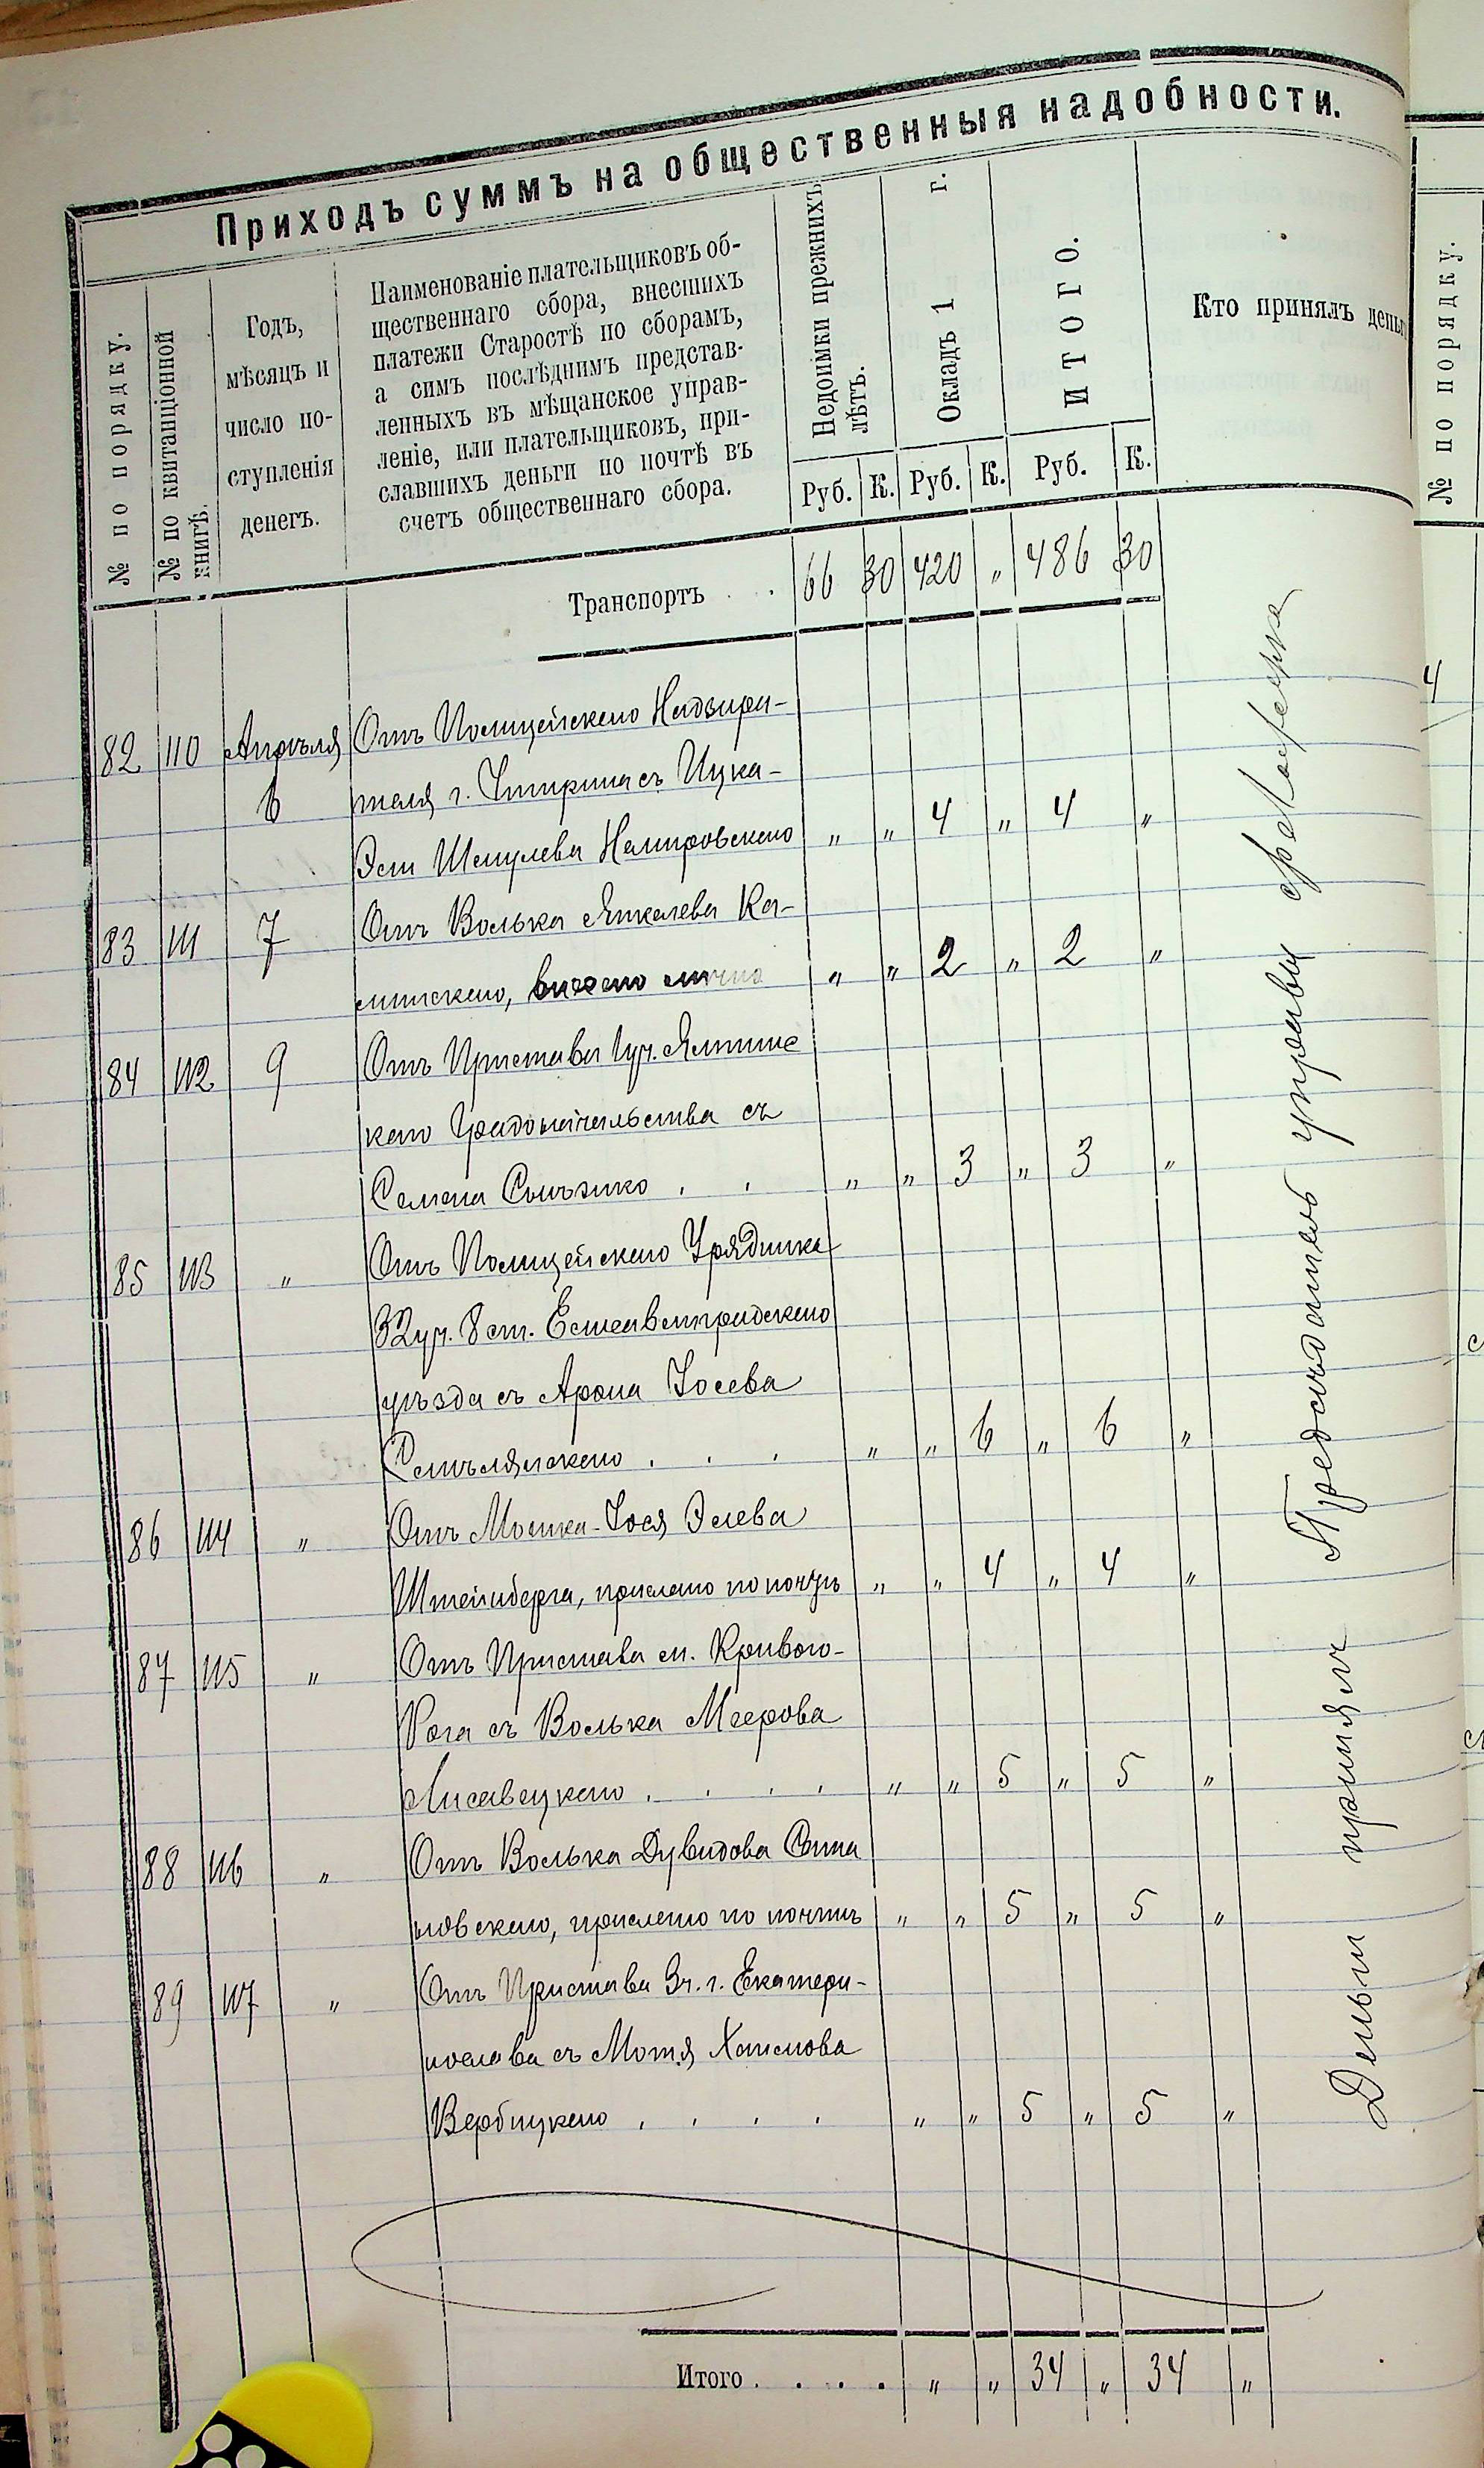 Приходъ суммъ на общественныя надобности.
№ по порядку.
№ по квитанціонной книгѣ.
Годъ,
мѣсяцъ и
число по-
ступленія
денегъ.
Наименованіе плательщиковъ об-
щественнаго сбора, внесшихъ
платежи Старостѣ по сборамъ,
а симъ послѣднимъ представ-
ленныхъ въ мѣщанское управ-
леніе, или плательщиковъ, при-
славшихъ деньги по почтѣ въ
счетъ общественнаго сбора.
Недоимки прежнихъ лѣтъ.
Окладъ 1 г.
ИТОГО.
Кто принялъ деньг
Руб. К. Руб. К. Руб. К.
Транспортъ . . 66 30 420 „ 486 30
82 110 Апрѣля Отъ Полицейскаго Надзира-
6 теля г. съ Ицка-
Эли Шмулева Немировскаго „ „ 4 „ 4 „
83 111 7 Отъ Волька Янкелева Ка-
минскаго, внесено лично „ „ 2 „ 2 „
84 112 9 Отъ Пристава 1 уч. Ялтинс
каго Градоначальства съ
Семена . . „ „ 3 „ 3 „
85 113 „ Отъ Полицейскаго Урядника
32 уч. 8 ст. Елисаветградскаго
уѣзда съ Арона Іосева
. . . „ „ 6 „ 6 „
86 114 „ Отъ Мошка-Іося Элева
Штейнберга, прислано по почтѣ „ „ 4 „ 4 „
87 115 „ Отъ Пристава м. Кривого-
Рога съ Волька Меерова
Лисавецкаго . . . . „ „ 5 „ 5 „
88 116 „ Отъ Волька Дувидова
новскаго, прислано по почтѣ „ „ 5 „ 5 „
89 117 „ Отъ Пристава 3 ч. г. Екатери-
нослава съ Мотя Хаимова
Вербицкаго . . . . „ „ 5 „ 5 „
Итого . . . . . „ „ 34 „ 34 „
Деньги принялъ Предсѣдатель управы
№ по порядку.
4